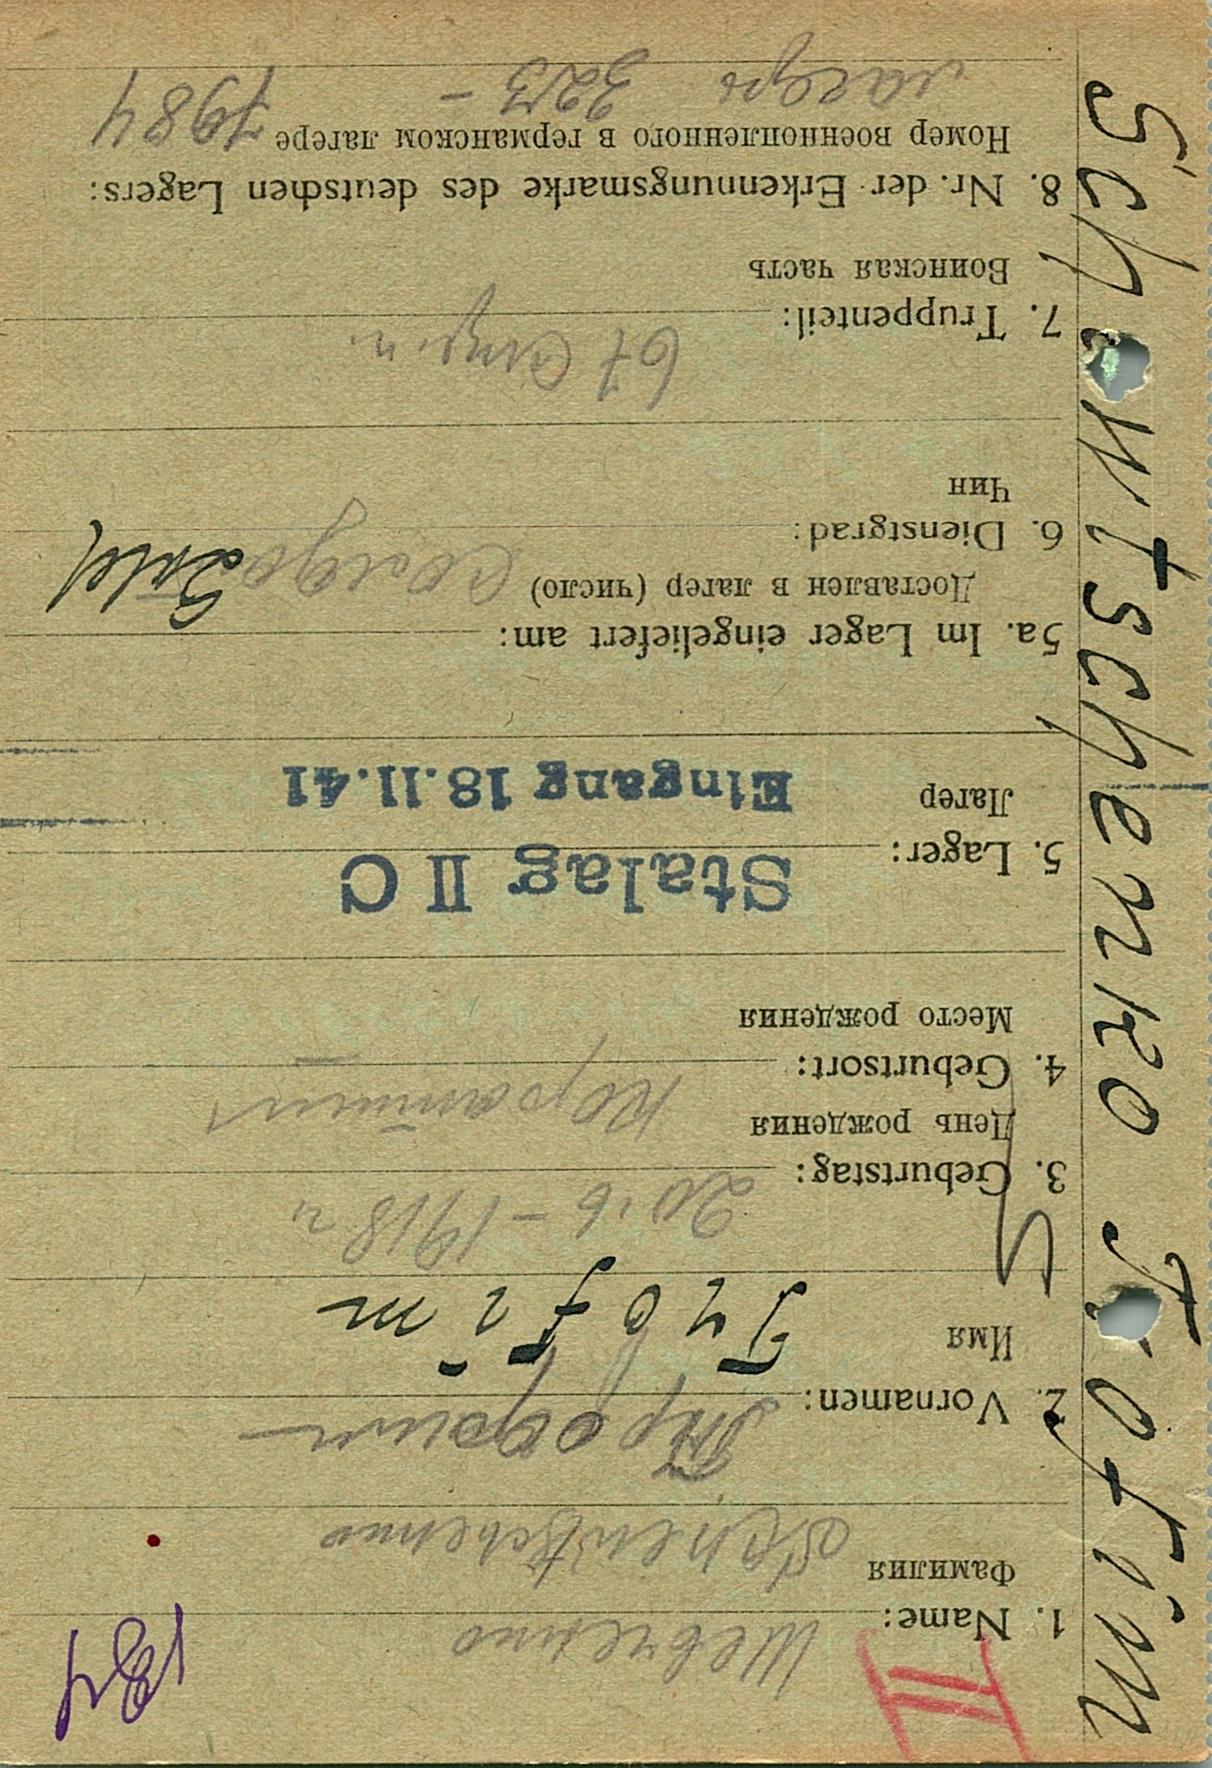 184
II
1. Name: Шевченко
Фамилия Schewtschenko
2. Vornamen: Трофим
Имя Trofim
3. Geburtstag: 20.6-1918 г
День рождения
4. Geburtsort:
Место рождения
5. Lager: Stalag II C
Лагер Eingang 18.11.41
5a. Im Lager eingeliefert am:
Доставлен в лагер (число)
6. Dienstgrad: Солдат
Чин
7. Truppenteil: 67
Воинская часть
8. Nr. der Erkennungsmarke des deutschen Lagers:
Номер военнопленного в германском лагере 7984
лагерь 323 -
Schewtschenko Trofim